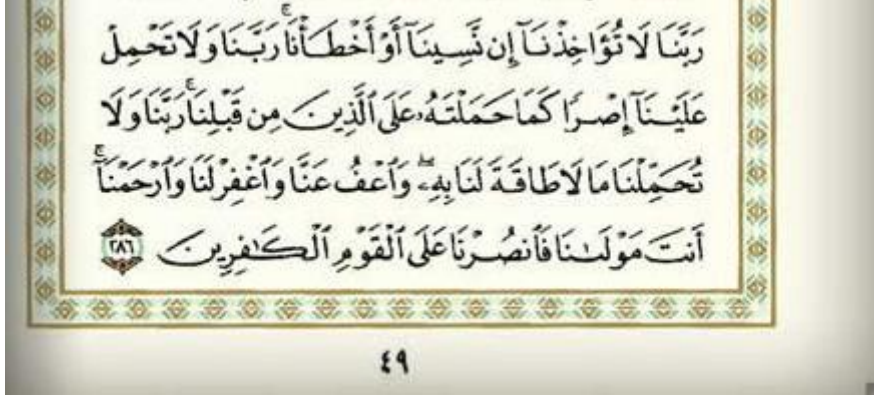 رَبَّنَا لَا تُؤَاخِذْنَآ إِن نَّسِينَآ أَوْ أَخْطَأْنَا ۚ رَبَّنَا وَلَا تَحْمِلْ
عَلَيْنَآ إِصْرًا كَمَا حَمَلْتَهُۥ عَلَى ٱلَّذِينَ مِن قَبْلِنَا ۚ رَبَّنَا وَلَا
تُحَمِّلْنَا مَا لَا طَاقَةَ لَنَا بِهِۦ ۖ وَٱعْفُ عَنَّا وَٱغْفِرْ لَنَا وَٱرْحَمْنَآ ۚ
أَنتَ مَوْلَىٰنَا فَٱنصُرْنَا عَلَى ٱلْقَوْمِ ٱلْكَـٰفِرِينَ ٢٨٦
٤٩